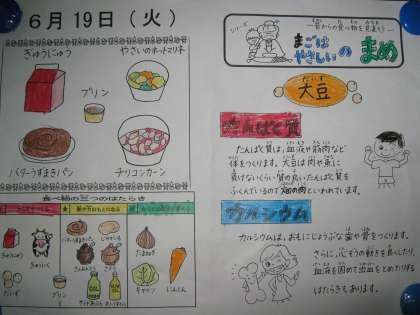 6月19日（火）
ぎゅうにゅう
やさいのホットマリネ
プリン
バターうずまきパン
チリコンカーン
食べ物の三つのはたらき
ぎゅうにゅう
だいず
プリン
バターうずまきパン
じゃがいも
さとう
たまねぎ
キャベツ
にんじん
シリーズ
昔からの食べ物を見直そう
まごは
やさしいの
まめ
だいず
大豆
たんぱく質
たんぱく質は、血液や筋肉など
体をつくります。大豆は肉や魚に
負けないくらい質の良いたんぱく質を
ふくんでいるので畑の肉といわれています。
カルシウム
カルシウムは、おもにじょうぶな歯や骨をつくります。
さらに、心ぞうの動きを良くしたり、
血液を固めて出血をとめたりする
はたらきもあります。